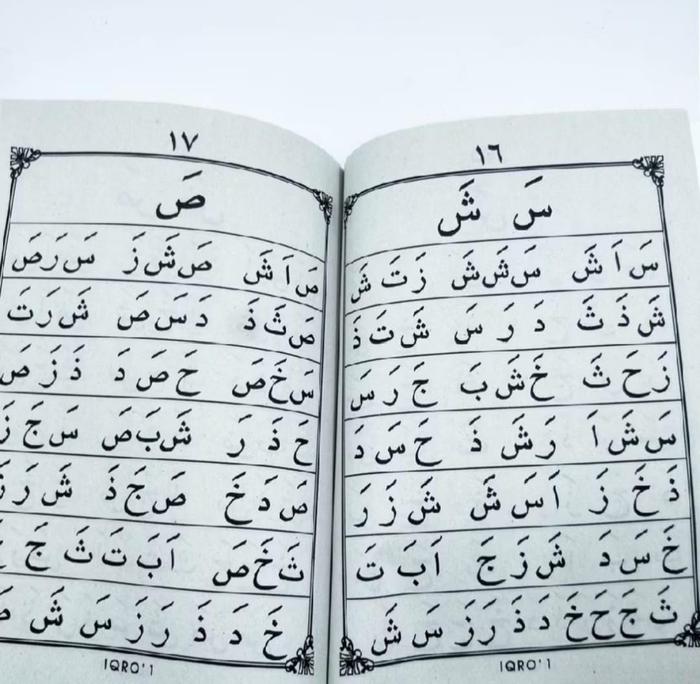 ١٦
سَ شَ
سَ اَ شَ سَ شَ شَ زَ تَ شَ
شَ ذَ ثَ دَ رَ سَ شَ تَ ذَ
زَ حَ ثَ خَ شَ بَ جَ رَ سَ
سَ شَ اَ رَ شَ ذَ حَ سَ دَ
ذَ خَ زَ اَ سَ شَ شَ زَ رَ
خَ سَ دَ شَ زَ جَ اَ بَ تَ
ثَ جَ حَ خَ دَ ذَ رَ زَ سَ شَ
IQRO'1
١٧
صَ
صَ اَ شَ صَ شَ زَ سَ رَ صَ
صَ ثَ ذَ دَ سَ صَ شَ رَ تَ
سَ خَ صَ حَ صَ دَ ذَ زَ صَ
حَ ذَ رَ شَ بَ صَ سَ جَ زَ
صَ دَ خَ صَ جَ ذَ شَ رَ زَ
ثَ خَ صَ اَ بَ تَ ثَ جَ
خَ دَ ذَ رَ زَ سَ شَ
IQRO'1